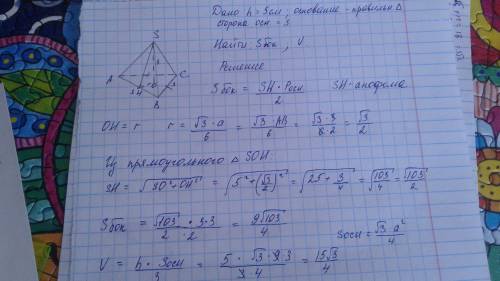 Дано h = 5см; основание - правильн Δ
сторона осн = 3
Найти Sбок, V
Решение
S
A
C
B
O
H
Sбок = SH · Pосн / 2   SH - апофема
OH = r   r = √3 · a / 6 = √3 · AB / 6 = √3 · 3 / 6 · 2 = √3 / 2
Из прямоугольного Δ SOH
SH = √(SO² + OH²) = √(5² + (√3/2)²) = √(25 + 3/4) = √(103/4) = √103 / 2
Sбок = √103 · 3 · 3 / 2 · 2 = 9√103 / 4   Sосн = √3 a² / 4
V = h · Sосн / 3 = 5 · √3 · 3 · 3 / 3 · 4 = 15√3 / 4